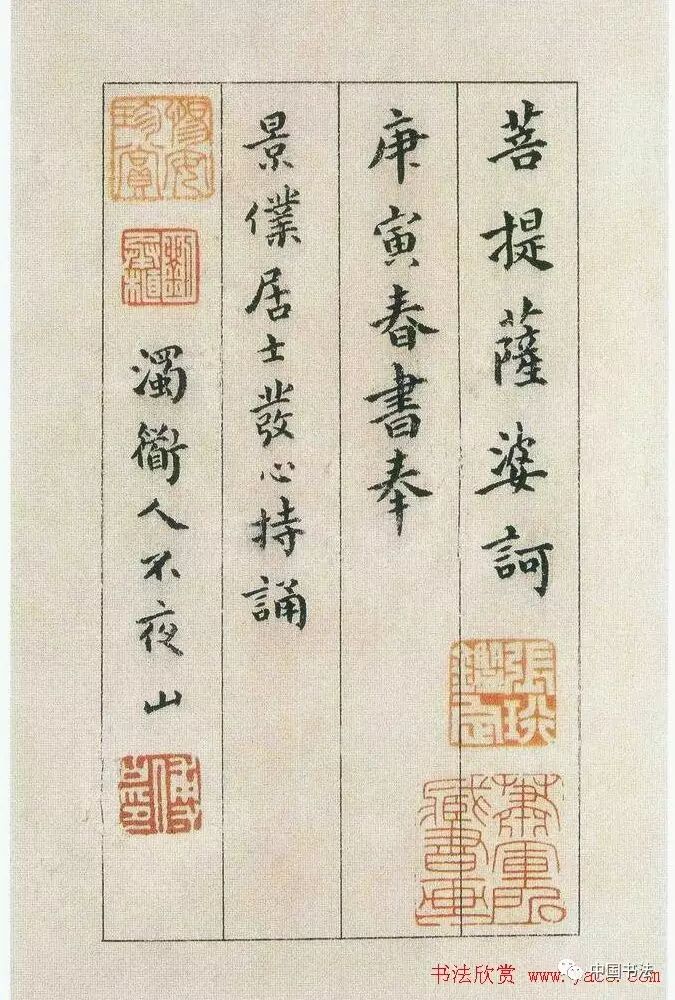 菩提薩婆訶
庚寅春書奉
景僕居士發心持誦
濁衟人不夜山
书法欣赏 www.yac8.com
中国书法